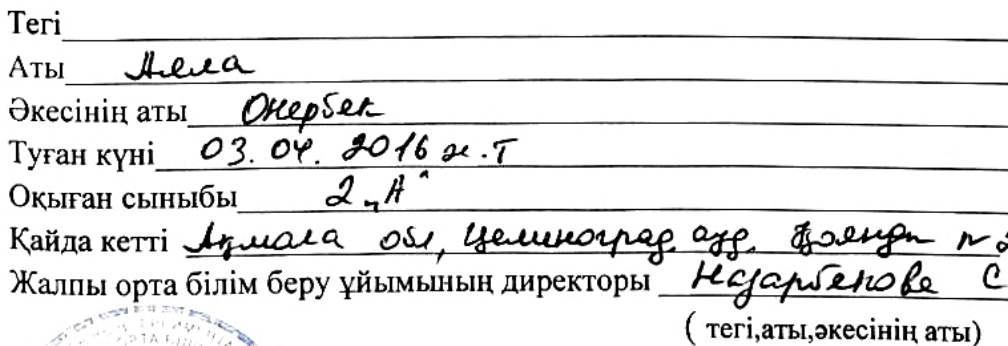 Тегі
Аты Аяла
Әкесінің аты Өнербек
Туған күні 03.04.2016 ж.т
Оқыған сыныбы 2 „А“
Қайда кетті Ақмола обл, Целиноград ауд. Қоянды n 2
Жалпы орта білім беру ұйымының директоры Назарбекова С
( тегі,аты,әкесінің аты)